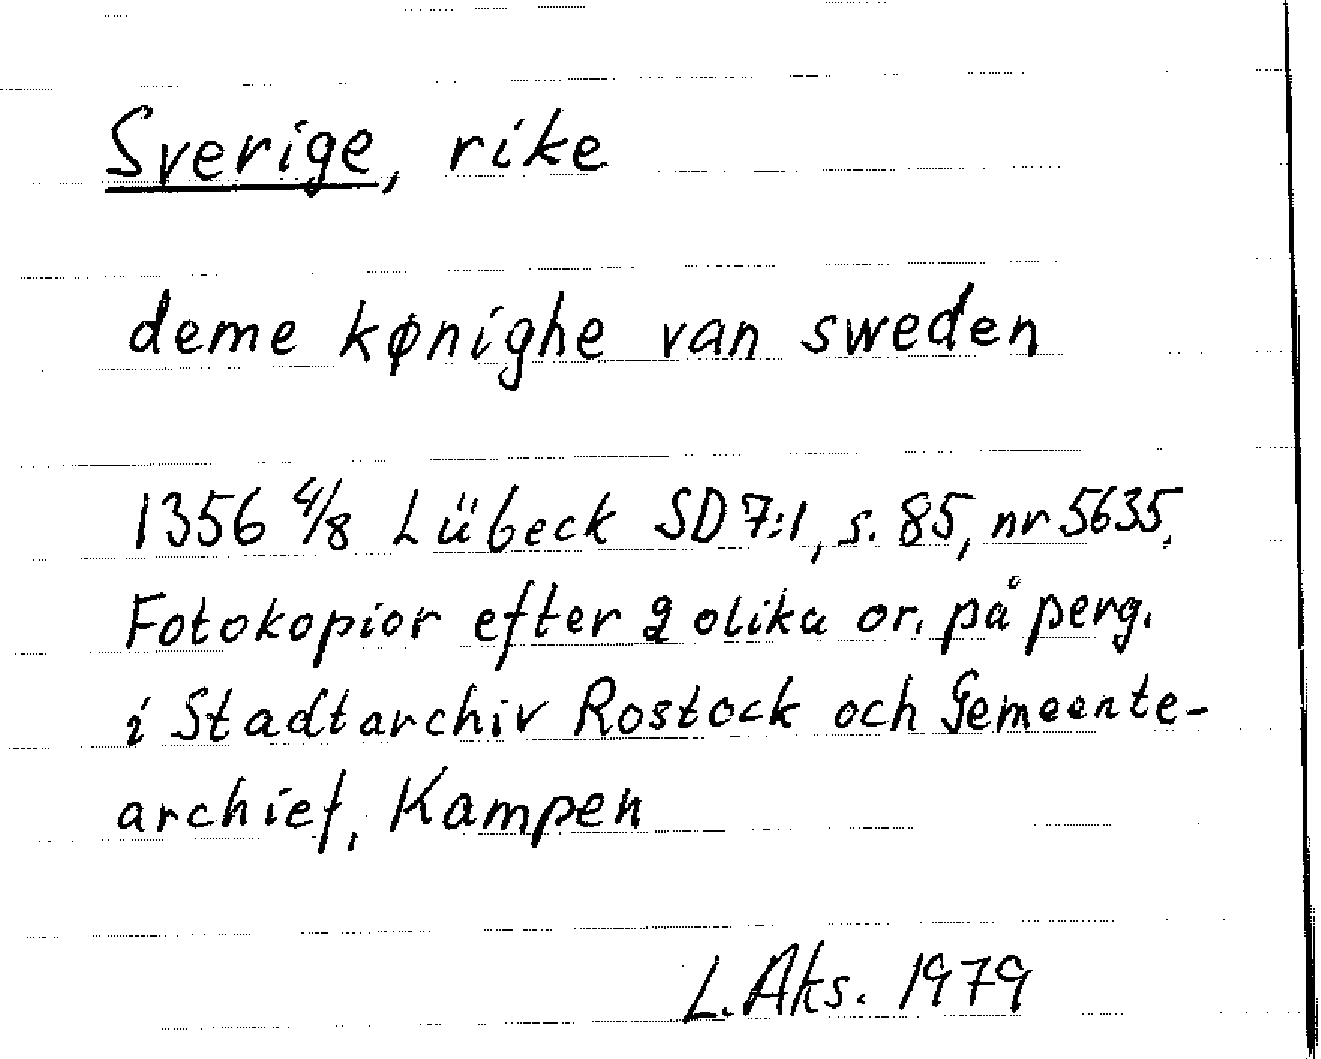 Sverige, rike
deme kønighe van sweden
1356 4/8 Lübeck SD 7:1, s. 85, nr 5635.
Fotokopior efter 2 olika or. på perg.
i Stadtarchiv Rostock och Gemeente-
archief, Kampen
L. Aks. 1979